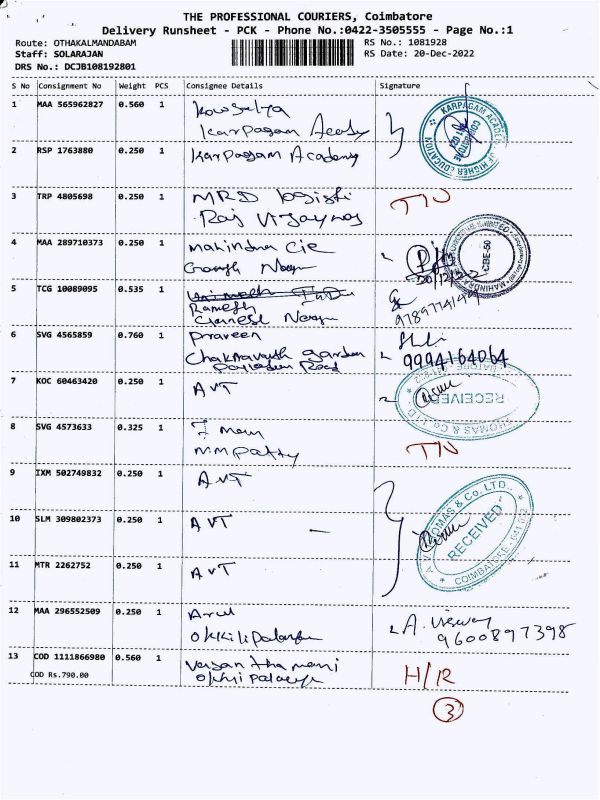 THE PROFESSIONAL COURIERS, Coimbatore
Delivery Runsheet - PCK - Phone No.:0422-3505555 - Page No.:1
Route: OTHAKALMANDABAM
RS No.: 1081928
Staff: SOLARAJAN
RS Date: 20-Dec-2022
DRS No.: DCJB108192801
S No Consignment No Weight PCS Consignee Details Signature
1 MAA 565962827 0.560 1 Kowsalya
Karpagam Acady
KARPAGAM ACADEMY OF HIGHER EDUCATION
COIMBATORE
2 RSP 1763880 0.250 1 Karpagam Academy
3 TRP 4805698 0.250 1 MRD logisti
Raj Vijaynag
TIN
4 MAA 289710373 0.250 1 Mahindra Cie
Ganesh Nagar
MAHINDRA
CBE-50
5 TCG 10089095 0.535 1
Ramesh
Ganesh Nagar
6 SVG 4565859 0.760 1 Praveen
Chakravarth garden
Road
9994164064
7 KOC 60463420 0.250 1 AVT
RECEIVED
THOMAS & Co. LTD.
8 SVG 4573633 0.325 1
MMPatty
TIN
9 IXM 502749832 0.250 1 AVT
10 SLM 309802373 0.250 1 AVT
A.V. THOMAS & Co. LTD.,
RECEIVED
COIMBATORE - 641 032
11 MTR 2262752 0.250 1 AVT
12 MAA 296552509 0.250 1 Arul
Okkilipalayam
A.
9600897398
13 COD 1111866980 0.560 1 Vasanthamani
COD Rs.790.00
H/R
3